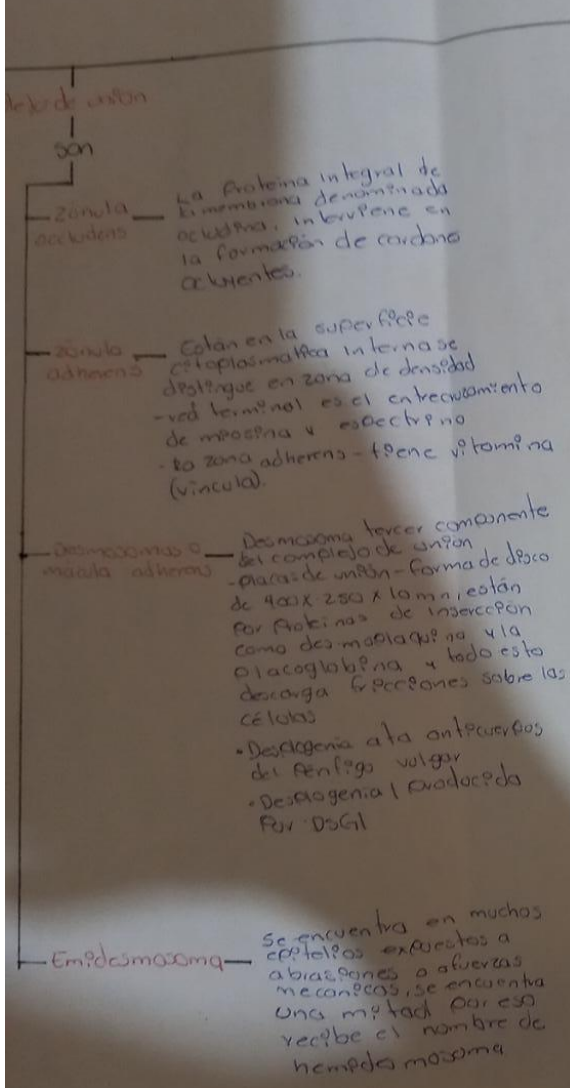 de unión
son
Zónula
occludens
La Proteína integral de
la membrana denominada
ocludina, interviene en
la formación de cordone
ocluyentes.
zónula
adherens
Están en la superficie
citoplasmática interna se
distingue en zona de densidad
-red terminal es el entrecruzamiento
de miosina y espectrino
- la zona adherens - tiene vitamina
(vincula).
Desmosomas o
macula adherens
Desmosoma tercer componente
del complejo de unión
-placas de unión - forma de disco
de 400 x 250 x 10 mn, están
por proteínas de insercción
como desmoplaquina y la
placoglobina y todo esto
descarga fricciones sobre las
células
• Desmogenia ata anticuerpos
del Penfigo vulgar
• 1 producida
Por DSG1
Emidesmosoma
se encuentra en muchos
epitelios expuestos a
abrasiones o afuerzas
mecanicas, se encuentra
una mitad por eso
recibe el nombre de
hemedesmosoma